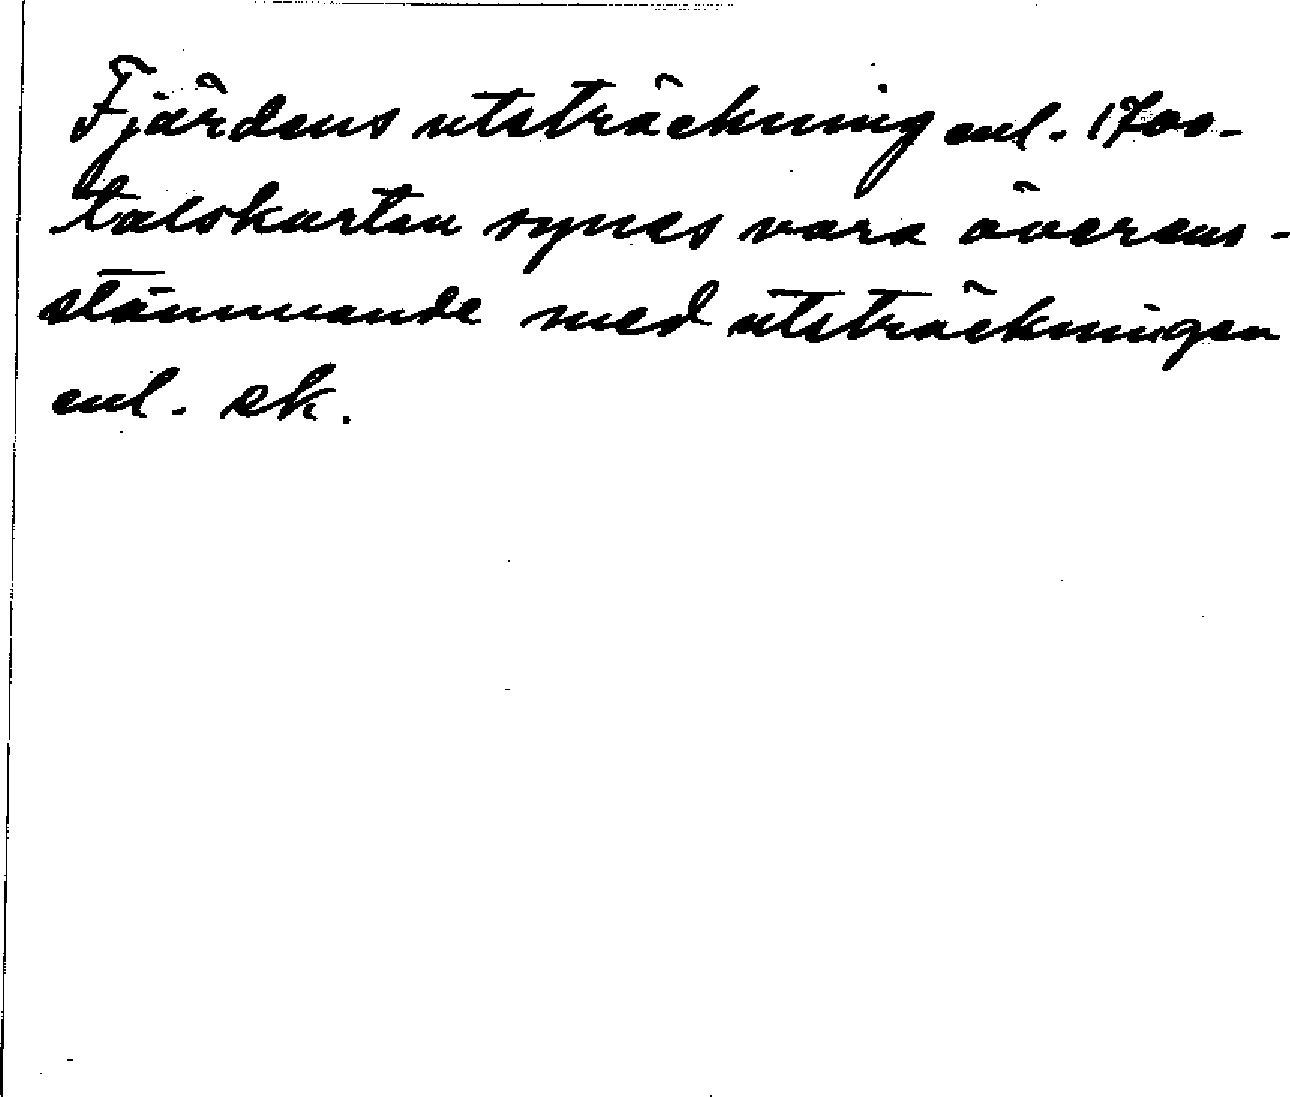 Fjärdens utsträckning enl. 1700-
talskartan synes vara överens-
stämmande med utsträckningen
enl. ek.